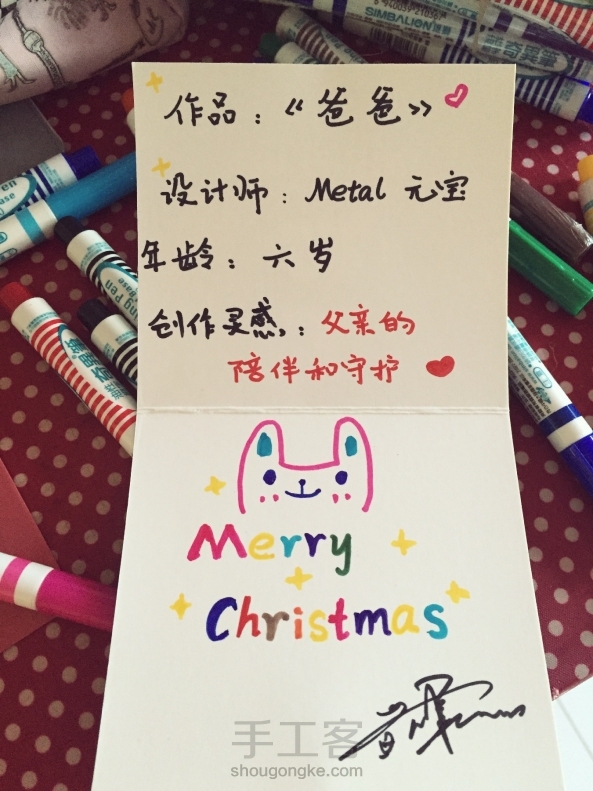 作品：《爸爸》
设计师：Metal 元宝
年龄：六岁
创作灵感：父亲的
陪伴和守护
Merry
Christmas
手工客
shougongke.com